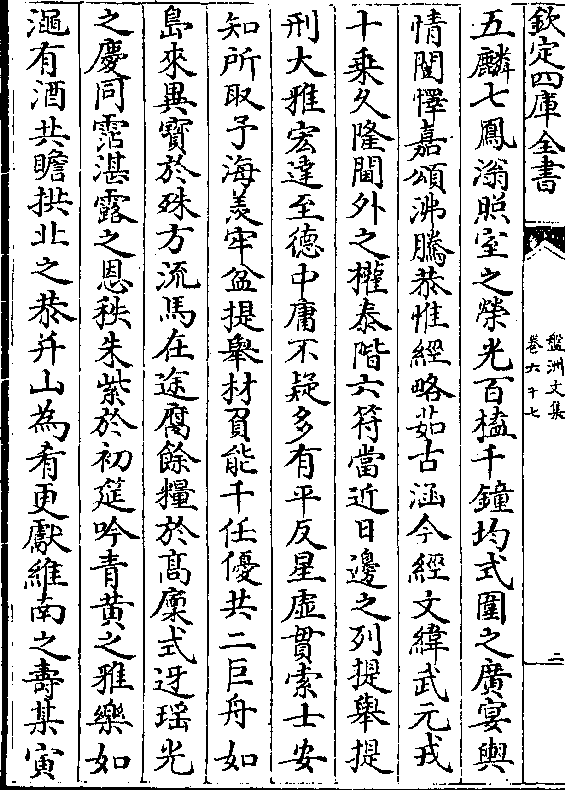 欽定四庫全書
盤洲文集
卷六十七
二
五麟七鳳滃照室之榮光百榼千鐘均式圍之廣宴輿
情闓懌嘉頌沸騰恭惟經略茹古涵今經文緯武元戎
十乗久隆閫外之權泰階六符當近日邊之列提舉提
刑大雅宏達至德中庸不疑多有平反星虚貫索士安
知所取予海羡牢盆提舉材負能千任優共二巨舟如
島來異寳於殊方流馬在途腐餘糧於髙廩式迓瑶光
之慶同霑湛露之恩秩朱紫於初筵吟青黄之雅樂如
澠有酒共瞻拱北之恭幷山為肴更獻維南之壽某寅